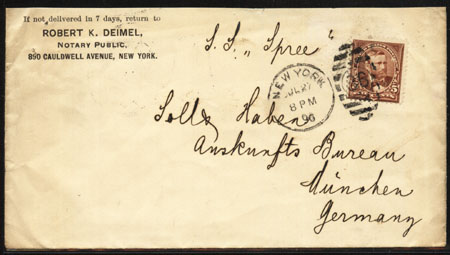 If not delivered in 7 days, return to
ROBERT K. DEIMEL,
NOTARY PUBLIC,
890 CAULDWELL AVENUE, NEW YORK.
S. S. „Spree"
NEW YORK
JUL 27
8 PM
96
Soll & Haben
Auskunfts Bureau
München
Germany